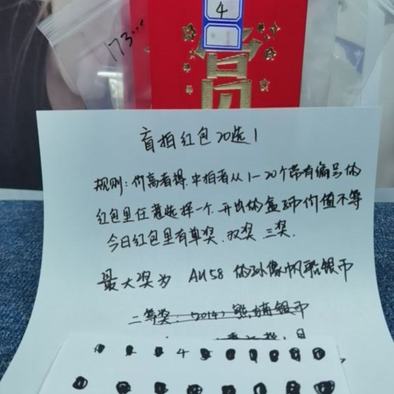 173...
4
赏
盲拍红包20选1
规则:价高者得,中拍者从1-20个带有编号的
红包里任意选择一个,开出的盒币价值不等
今日红包里有单奖.双奖.三奖.
最大奖为 AU58 的孙像帆船银币
二等奖:2014年熊猫银币
4